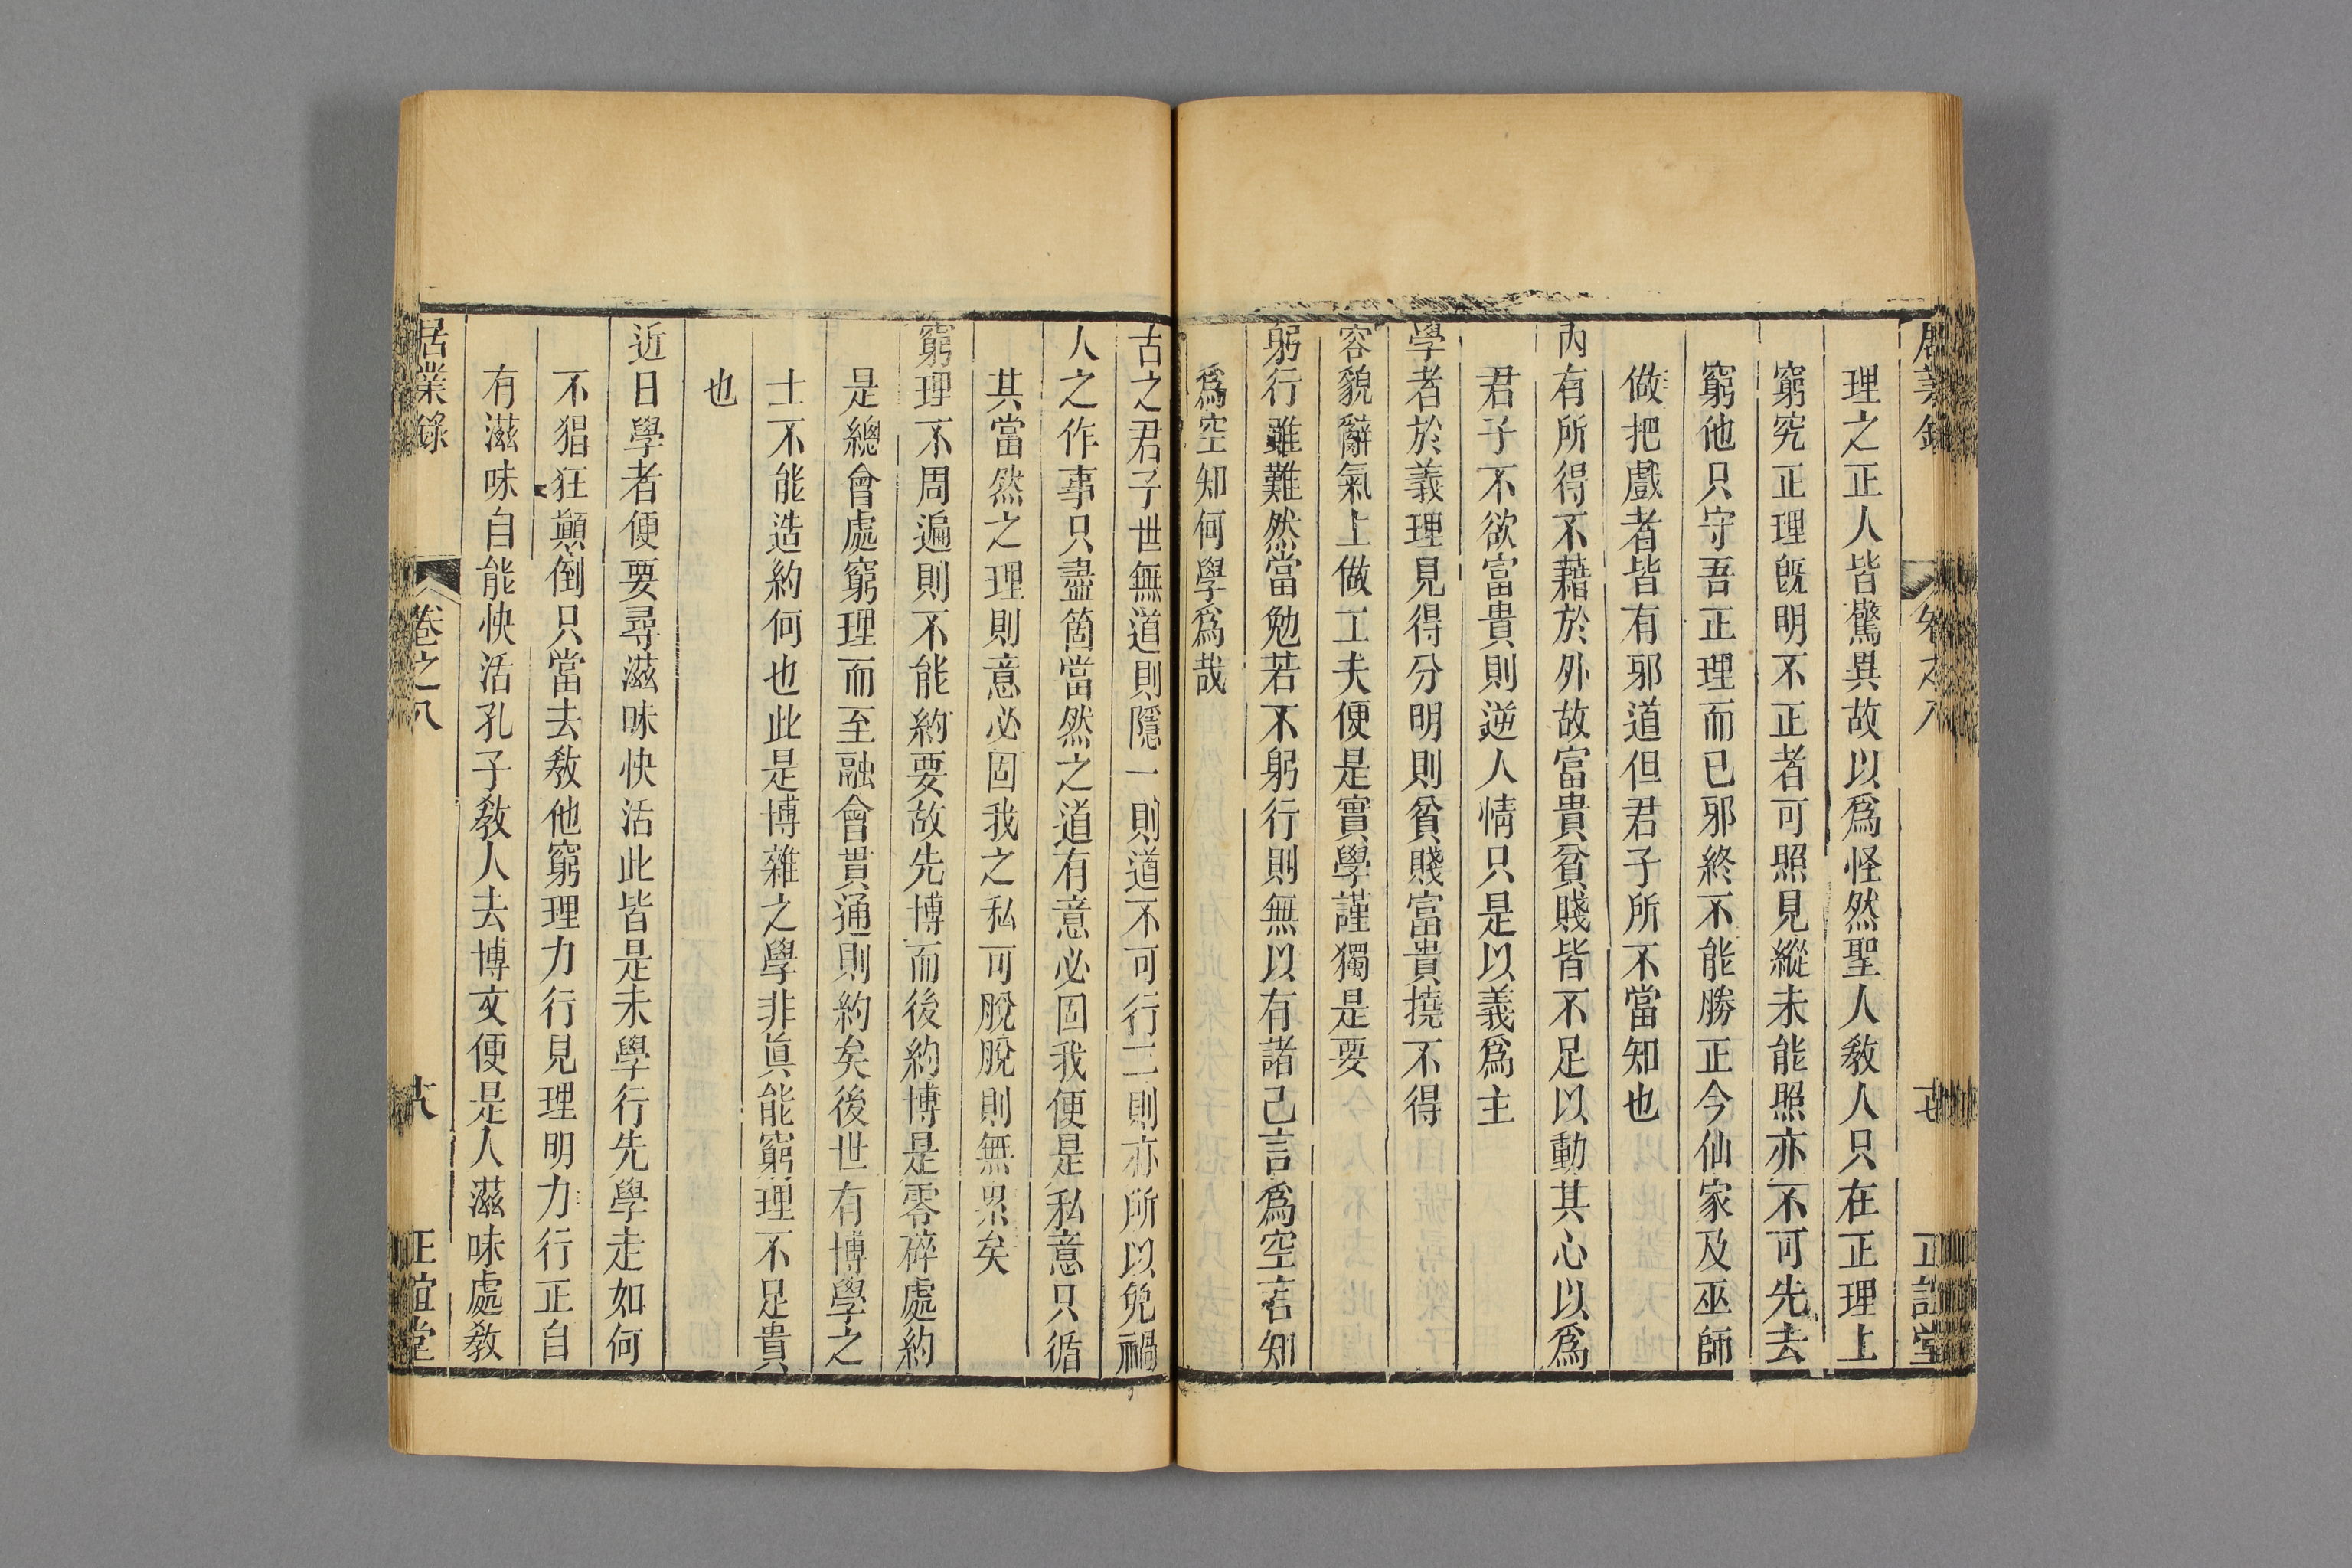 居業錄 卷之八 十七 正誼堂
理之正人皆驚異故以爲怪然聖人敎人只在正理上
窮究正理旣明不正者可照見縱未能照亦不可先去
窮他只守吾正理而已邪終不能勝正今仙家及巫師
做把戲者皆有邪道但君子所不當知也
內有所得不藉於外故富貴貧賤皆不足以動其心以爲
君子不欲富貴則逆人情只是以義爲主
學者於義理見得分明則貧賤富貴撓不得
容貌辭氣上做工夫便是實學謹獨是要
躬行雖難然當勉若不躬行則無以有諸己言爲空言知
爲空知何學爲哉
古之君子世無道則隱一則道不可行二則亦所以免禍
人之作事只盡箇當然之道有意必固我便是私意只循
其當然之理則意必固我之私可脫脫則無累矣
窮理不周遍則不能約要故先博而後約博是零碎處約
是總會處窮理而至融會貫通則約矣後世有博學之
士不能造約何也此是博雜之學非眞能窮理不足貴
也
近日學者便要尋滋味快活此皆是未學行先學走如何
不猖狂顚倒只當去敎他窮理力行見理明力行正自
有滋味自能快活孔子敎人去博文便是人滋味處敎
居業錄 卷之八 十八 正誼堂